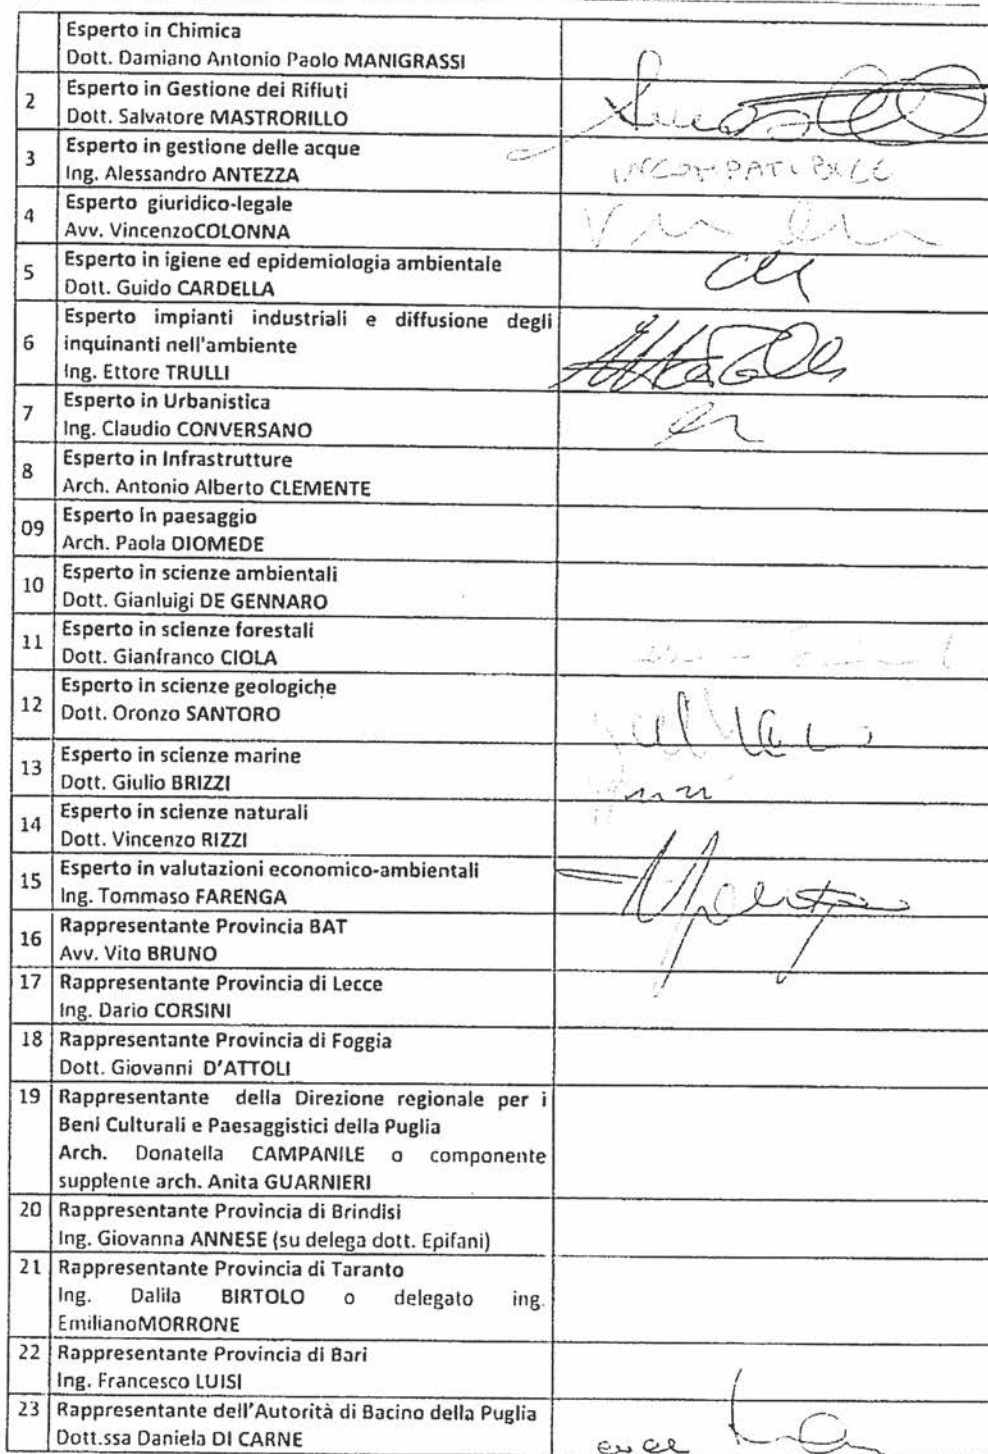 Esperto in Chimica
Dott. Damiano Antonio Paolo MANIGRASSI
2 Esperto in Gestione dei Rifiuti
Dott. Salvatore MASTRORILLO
3 Esperto in gestione delle acque
Ing. Alessandro ANTEZZA
INCOMPATIBILE
4 Esperto giuridico-legale
Avv. VincenzoCOLONNA
5 Esperto in igiene ed epidemiologia ambientale
Dott. Guido CARDELLA
6 Esperto impianti industriali e diffusione degli
inquinanti nell'ambiente
Ing. Ettore TRULLI
7 Esperto in Urbanistica
Ing. Claudio CONVERSANO
8 Esperto in Infrastrutture
Arch. Antonio Alberto CLEMENTE
09 Esperto in paesaggio
Arch. Paola DIOMEDE
10 Esperto in scienze ambientali
Dott. Gianluigi DE GENNARO
11 Esperto in scienze forestali
Dott. Gianfranco CIOLA
12 Esperto in scienze geologiche
Dott. Oronzo SANTORO
13 Esperto in scienze marine
Dott. Giulio BRIZZI
14 Esperto in scienze naturali
Dott. Vincenzo RIZZI
15 Esperto in valutazioni economico-ambientali
Ing. Tommaso FARENGA
16 Rappresentante Provincia BAT
Avv. Vito BRUNO
17 Rappresentante Provincia di Lecce
Ing. Dario CORSINI
18 Rappresentante Provincia di Foggia
Dott. Giovanni D'ATTOLI
19 Rappresentante della Direzione regionale per i
Beni Culturali e Paesaggistici della Puglia
Arch. Donatella CAMPANILE o componente
supplente arch. Anita GUARNIERI
20 Rappresentante Provincia di Brindisi
Ing. Giovanna ANNESE (su delega dott. Epifani)
21 Rappresentante Provincia di Taranto
Ing. Dalila BIRTOLO o delegato ing.
EmilianoMORRONE
22 Rappresentante Provincia di Bari
Ing. Francesco LUISI
23 Rappresentante dell'Autorità di Bacino della Puglia
Dott.ssa Daniela DI CARNE